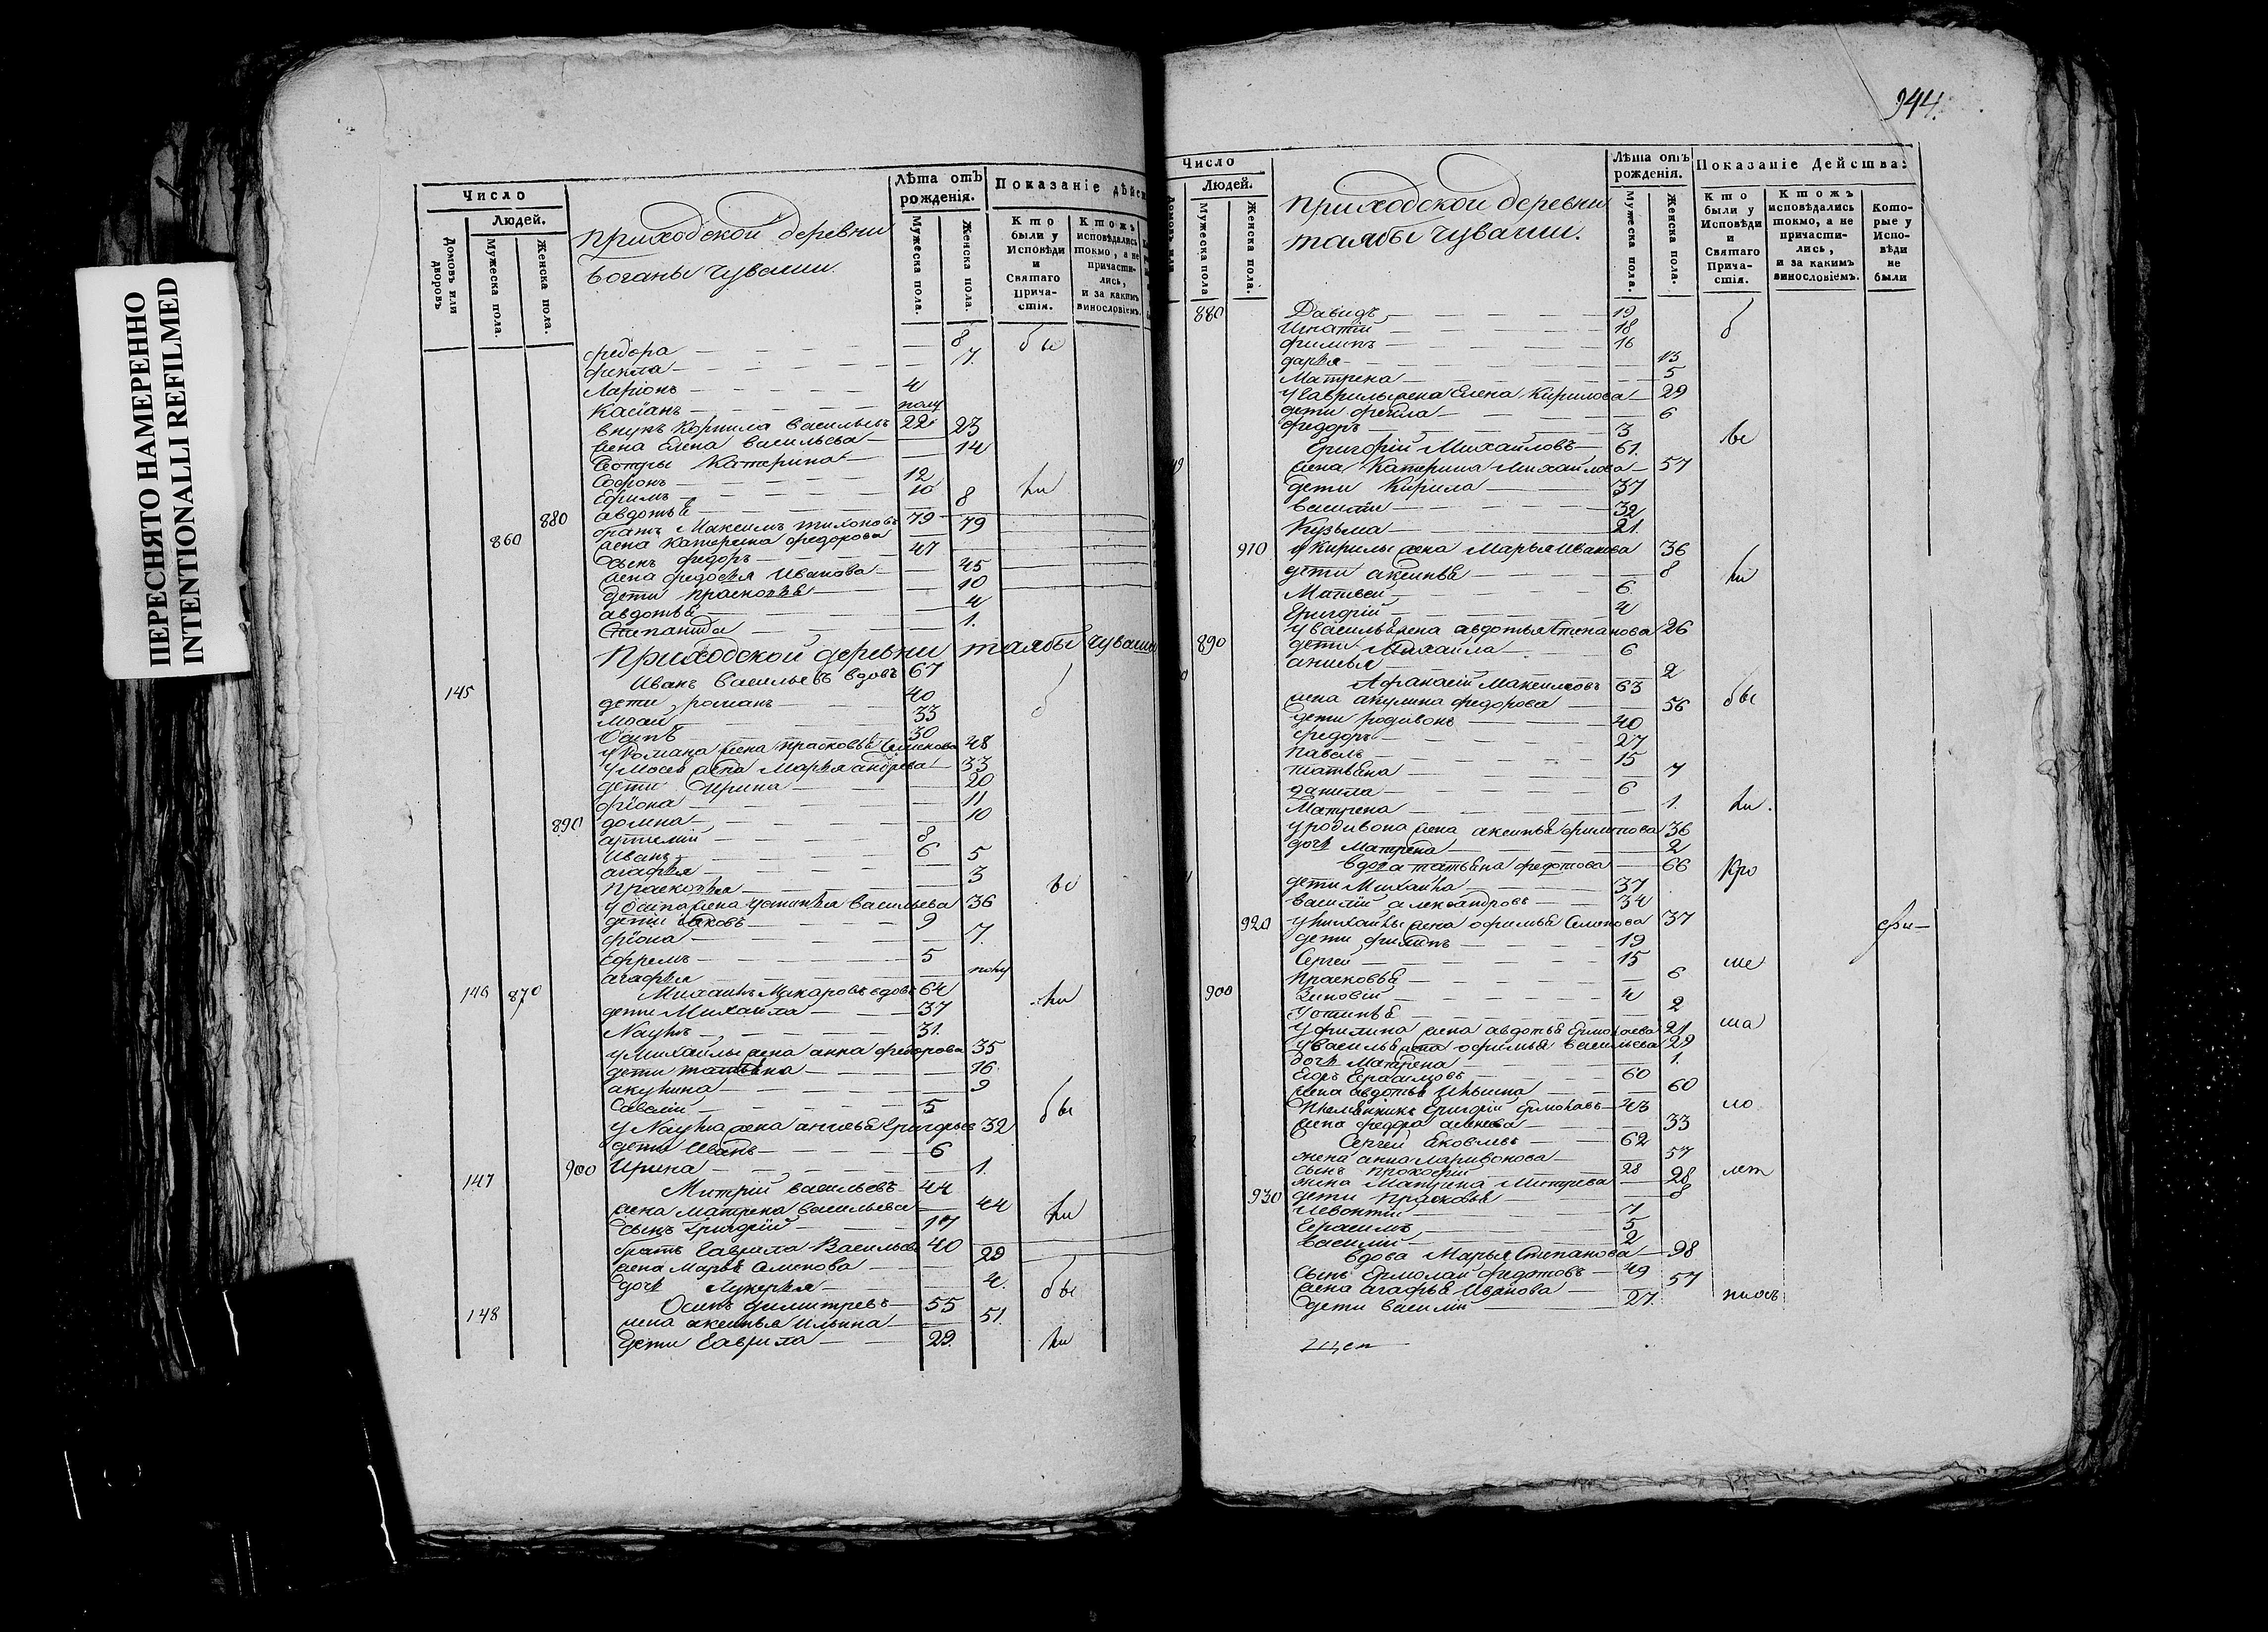 ПЕРЕСНЯТО НАМЕРЕННО
INTENTIONALLI REFILMED
Число
Людей.
Домовъ или дворовъ
Мужеска пола.
Женска пола.
приходской деревни
боганы чуваши.
Лѣта отъ рожденія.
Мужеска пола.
Женска пола.
Показаніе дѣйст
Кто были у Исповѣди и Святаго Прича-стія.
Ктожъ исповѣдались токмо, а не причасти-лись, и за какимъ винословіемъ.
федора — 8 бы
фекла — 7.
Ларіонъ — 4
Касіанъ — полу
внукъ Корнила васильевъ 22
жена Елена васильева — 23
Сестры Катерина — 14
Софронъ — 12
Ефимъ — 10 ли
880 авдотья — 8
братъ Максимъ тихоновъ 79
860 жена катерина федорова 79
сынъ федоръ — 47
жена федосья Иванова — 45
дети прасковья — 10
авдотья — 4
Степанида — 1.
приходской деревни таябы чуваши
145 Иванъ васильевъ вдовъ 67
дети, романъ — 40 б
Мосей — 33
Осипъ — 30
у Романа жена прасковья Семенова 48
у Мосея жена Марья андреева 33
дети Ирина — 20
фіона — 11
890 домна — 10
артемій — 8
Иванъ — 6
агафья — 5
прасковья — 3
у Осипа жена устинья васильева 36
дети яковъ — 9
фіона — 7.
Ефремъ — 5
агафья — полу
146 870 Михаилъ Макаровъ вдовъ 64 ли
дети Михаила — 37
Наумъ — 31.
у Михаилы жена анна федорова 35
дети татьяна — 16
акулина — 9
Савелій — 5 бы
у Наума жена анисья Григорьев 32
дети Иванъ — 6
900 Ирина — 1.
147 Митрій васильевъ 44
жена матрена васильева 44
сынъ Григорій — 17 ли
братъ Гаврила Васильевъ 40
жена Марья Семенова — 29
дочь Лукерья — 4. бы
148 Осипъ димитревъ — 55
жена аксинья Ильина — 51.
дети Гаврила — 29. ли
944.
Число
Людей.
Домовъ или
Мужеска пола
Женска пола.
приходской деревни
таябы чуваши.
Лѣта отъ рожденія.
Мужеска пола.
Женска пола.
Показаніе Действа:
Кто были у Исповѣди и Святаго Прича-стія.
Ктожъ исповѣдались токмо, а не причасти-лись, и за какимъ винословіемъ.
Кото-рые у Испо-вѣди не были
880 Давидъ — 19 б
Игнатій — 18
филипъ — 16
дарья — 13
Матрена — 5
у Гаврилы жена Елена Кирилова — 29
дети фекла — 6
федоръ — 3
Григорій Михайловъ — 61.
жена Катерина Михайлова — 57
дети Кирила — 37
василій — 32
Кузьма — 21.
910 у кирилы жена Марья Иванова 36
дети аксинья — 8 ли
Матвей — 6
Григорій — 4
у василья жена авдотья Степанова 26
890 дети Михаила — 6
анисья — 2
Афанасій Максимовъ — 63
жена акулина федорова — 56 бы
дети родивонъ — 40
федоръ — 27
павелъ — 15
татьяна — 7
данила — 6
Матрена — 1. ли.
у родивона жена аксинья филипова 36
дочь Матрена — 2
вдова татьяна федотова — 66 Кро
дети Михаила — 37
василій александровъ — 34
920 у михаилы жена офимья Семенова 37
дети филипъ — 19
Сергей — 15 ме
прасковья — 6
900 Зиновій — 4
устинья — 2
у филипа жена авдотья Ермолаева 21 ша
у василья жена офимья васильева 29
дочь Матрена — 1.
Егоръ Герасимовъ — 60
жена авдотья Ильина — 60
племянникъ Григорій Ермолаевъ 43
жена федора — 33
Сергей яковлевъ — 62
жена анна Ларивонова — 57
сынъ прокофій — 28 лет
жена Матрена Митрева — 28
930 дети прасковья — 8
Левонтій — 7
Герасимъ — 5
Василій — 2
вдова Марья Степанова — 98
сынъ Ермолай федотовъ — 49
жена агафья Иванова — 57
дети василій — 27.